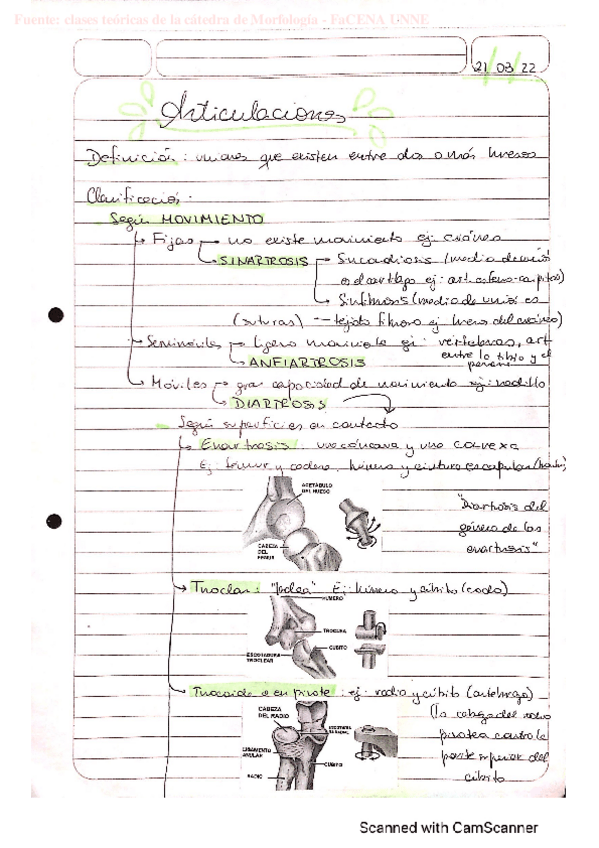 Fuente: clases teóricas de la cátedra de Morfología - FaCENA UNNE
21/03/22
Articulaciones
Definición: uniones que existen entre dos o más huesos
Clasificación:
Según MOVIMIENTO
Fijas no existe movimiento ej: cráneo
SINARTROSIS Sincondrosis (medio de unión
es el cartílago ej: art. esfeno-occipital)
Sinfibrosis (medio de unión es
(suturas) tejido fibroso ej hueso del cráneo)
Semimóviles ligero movimiento ej: vértebras, art
entre la tibia y el
ANFIARTROSIS peroné
Móviles gran capacidad de movimiento ej: rodilla
DIARTROSIS
Según superficies en contacto
Enartrosis: una cóncava y una convexa
Ej: fémur y cadera, húmero y cintura escapular
ACETABULO
DEL HUESO
CABEZA
DEL
FEMUR
"Diartrosis del
género de las
enartrosis"
Troclear: "polea" Ej: húmero y cúbito (codo)
HUMERO
TROCLEA
CUBITO
ESCOTADURA
TROCLEAR
Trocoide o en pivote: ej: radio y cúbito (antebrazo)
CABEZA
DEL RADIO
ESCOTADURA
RADIAL
LIGAMENTO
ANULAR
CUBITO
RADIO
(la cabeza del radio
pivotea contra la
parte superior del
cúbito
Scanned with CamScanner